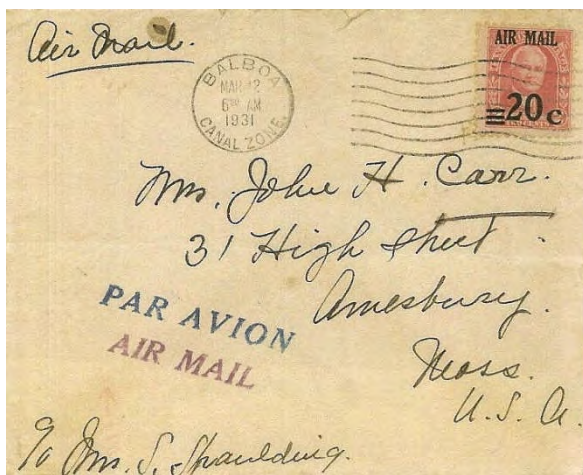 Air Mail.
BALBOA
MAR 12
6 00 AM
1931
CANAL ZONE.
AIR MAIL
20 c
Mrs. John H. Carr.
31 High Street.
Amesbury.
Mass.
U. S. A.
PAR AVION
AIR MAIL
℅ Mrs. S. Spaulding.